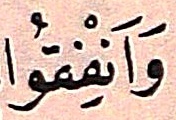 وَاَنْفِقُوا